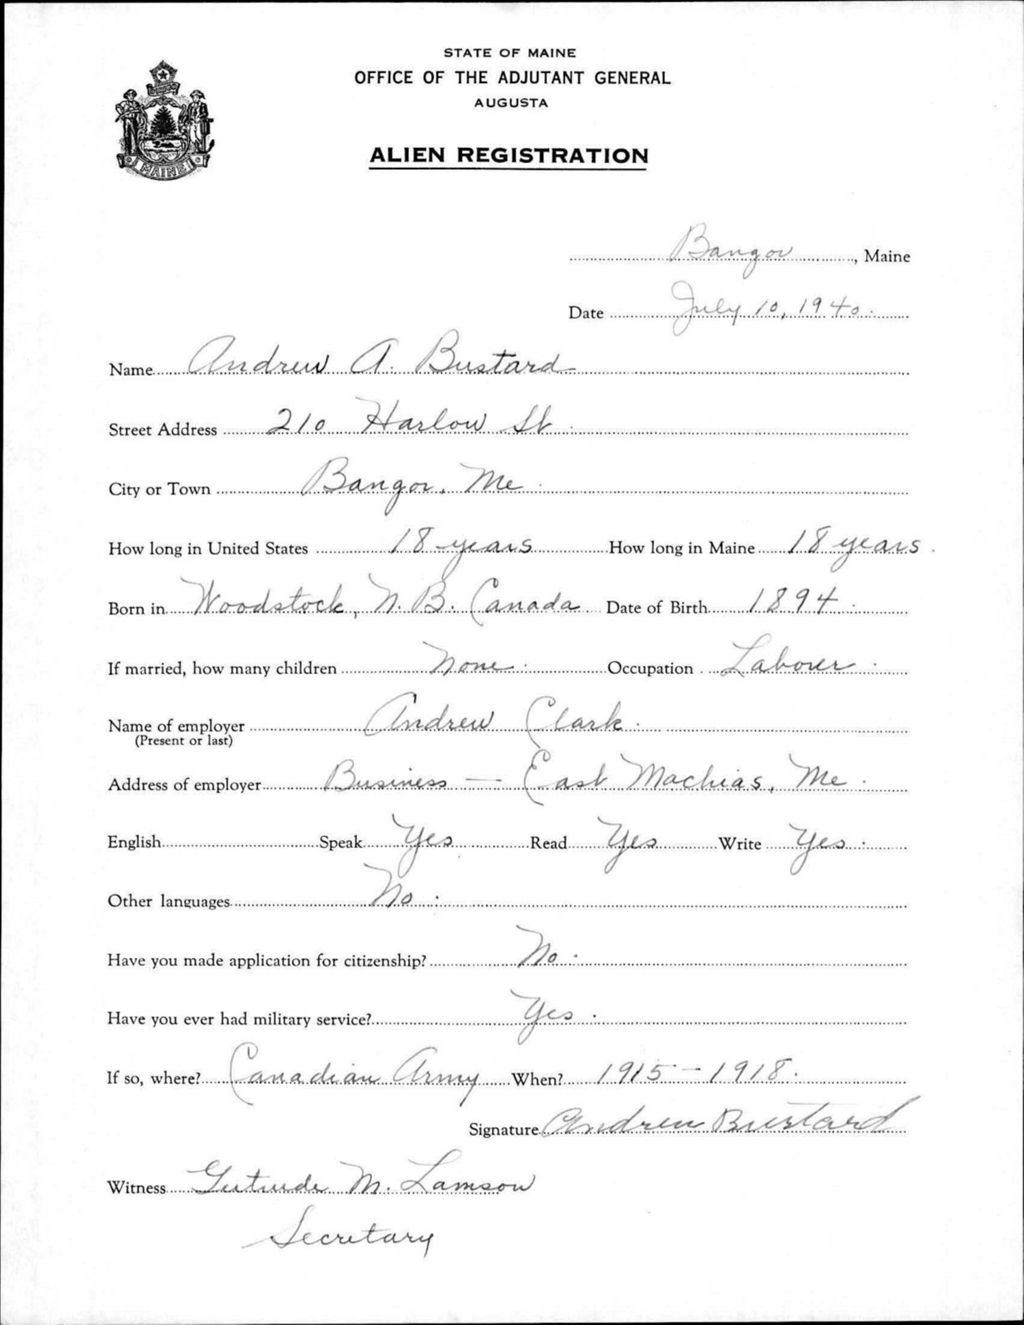 STATE OF MAINE
OFFICE OF THE ADJUTANT GENERAL
AUGUSTA
ALIEN REGISTRATION
MAINE
Bangor, Maine
Date July 10, 1940.
Name Andrew A. Bustard
Street Address 210 Harlow St.
City or Town Bangor, Me.
How long in United States 18 years How long in Maine 18 years.
Born in Woodstock, N. B. Canada Date of Birth 1894.
If married, how many children None. Occupation Laborer.
Name of employer Andrew Clark.
(Present or last)
Address of employer Business — East Machias, Me.
English Speak Yes Read Yes Write Yes.
Other languages No.
Have you made application for citizenship? No.
Have you ever had military service? Yes.
If so, where? Canadian Army When? 1915 - 1918.
Signature Andrew Bustard
Witness Gertrude M. Lamson
Secretary